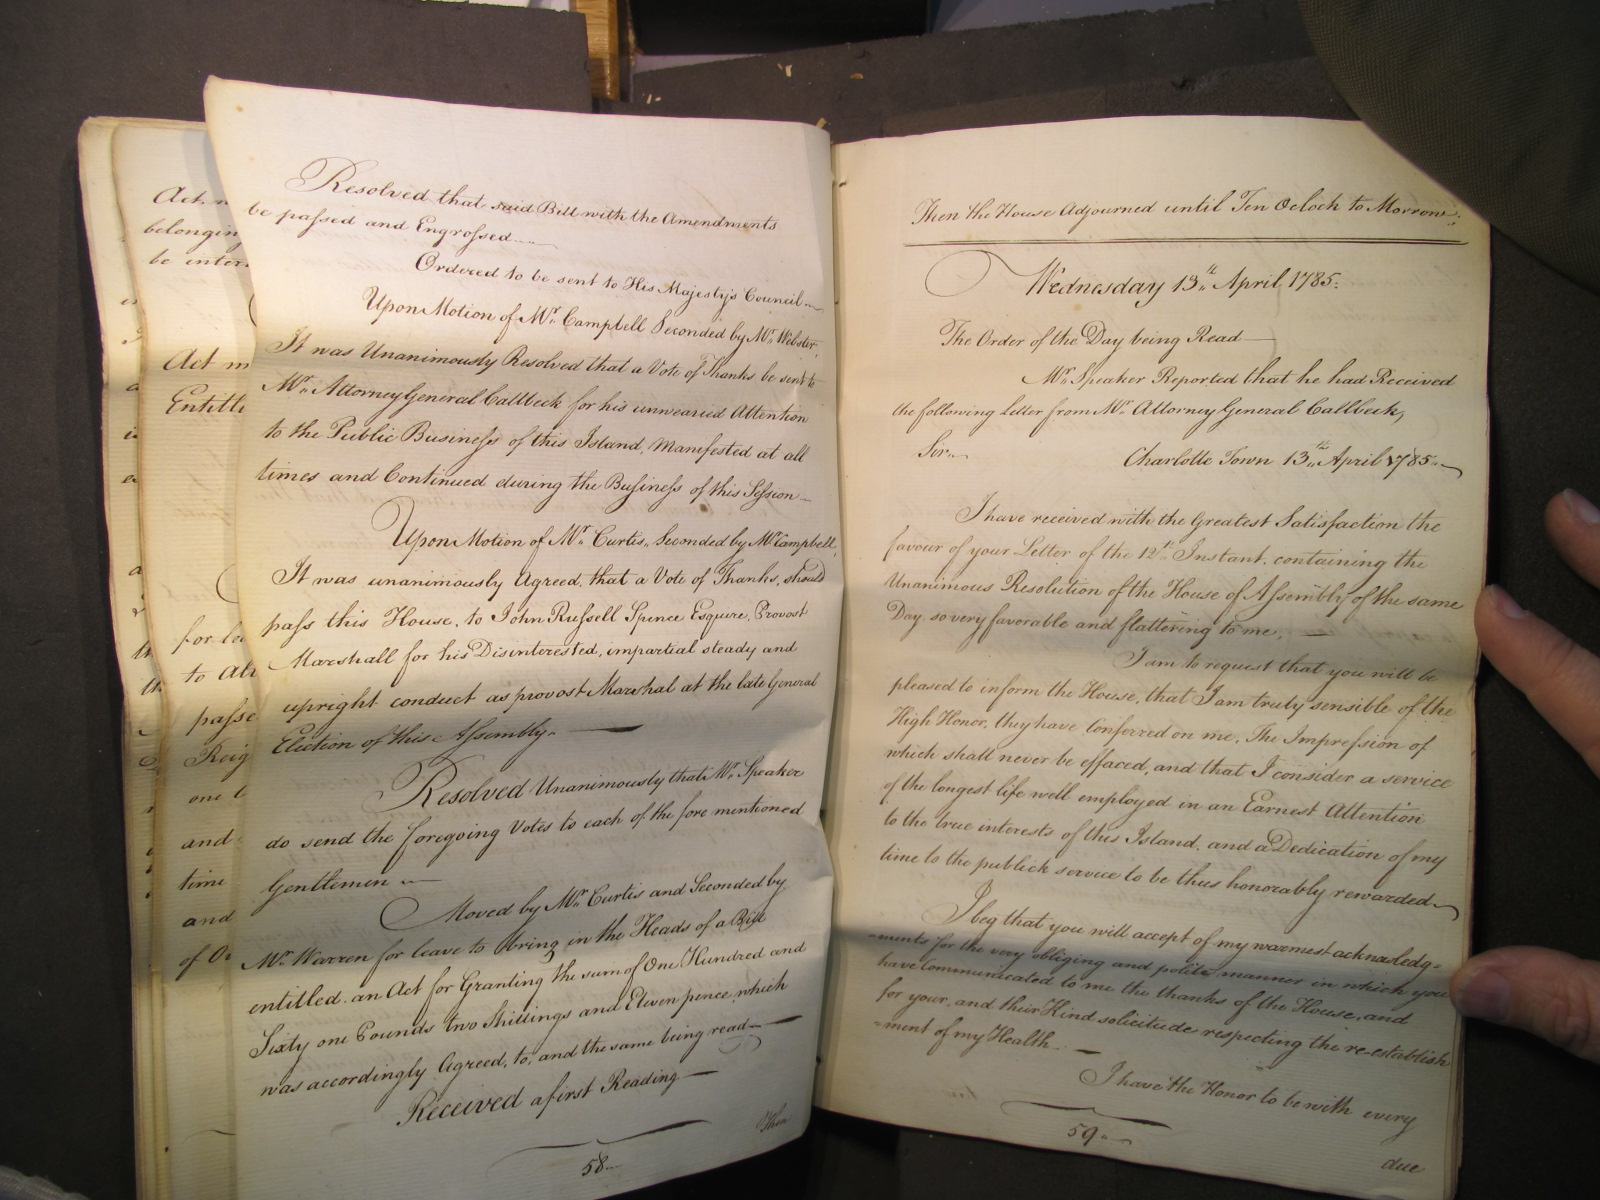 Act
belonging
be inter
Act
Entitle
for
to
passe
Reig
one
and
time
and
of
Resolved that said Bill with the Amendments
be passed and Engrossed
Ordered to be sent to His Majesty's Council
Upon Motion of Mr. Campbell Seconded by Mr. Webster,
It was Unanimously Resolved that a Vote of Thanks be sent to
Mr. Attorney General Callbeck for his unwearied Attention
to the Public Business of this Island, Manifested at all
times and Continued during the Business of this Session
Upon Motion of Mr. Curtis, Seconded by Mr. Campbell,
It was unanimously Agreed, that a Vote of Thanks, should
pass this House, to John Russell Spence Esquire, Provost
Marshall for his Disinterested, impartial steady and
upright conduct as provost Marshal at the late General
Election of this Assembly.
Resolved Unanimously that Mr. Speaker
do send the foregoing Votes to each of the fore mentioned
Gentlemen
Moved by Mr. Curtis and Seconded by
Mr. Warren for leave to bring in the Heads of a Bill
entitled. an Act for Granting the sum of One Hundred and
Sixty one Pounds two Shillings and Eleven pence, which
was accordingly Agreed, to, and the same being read
Received a first Reading
Then
58
Then the House Adjourned until Ten Oclock to Morrow.
Wednesday 13th April 1785.
The Order of the Day being Read
Mr. Speaker Reported that he had Received
the following Letter from Mr. Attorney General Callbeck,
Sir
Charlotte Town 13th April 1785
I have received with the Greatest Satisfaction the
favour of your Letter of the 12th Instant. containing the
Unanimous Resolution of the House of Assembly of the same
Day, so very favorable and flattering to me,
I am to request that you will be
pleased to inform the House, that I am truly sensible of the
High Honor, they have Conferred on me, The Impression of
which shall never be effaced, and that I consider a service
of the longest life well employed in an Earnest Attention
to the true interests of this Island, and a Dedication of my
time to the publick service to be thus honorably rewarded
I beg that you will accept of my warmest acknowledg=
=ments for the very obliging and polite manner in which you
have Communicated to me the thanks of the House, and
for your, and their Kind solicitude respecting the re-establish
=ment of my Health
I have the Honor to be with every
59
due